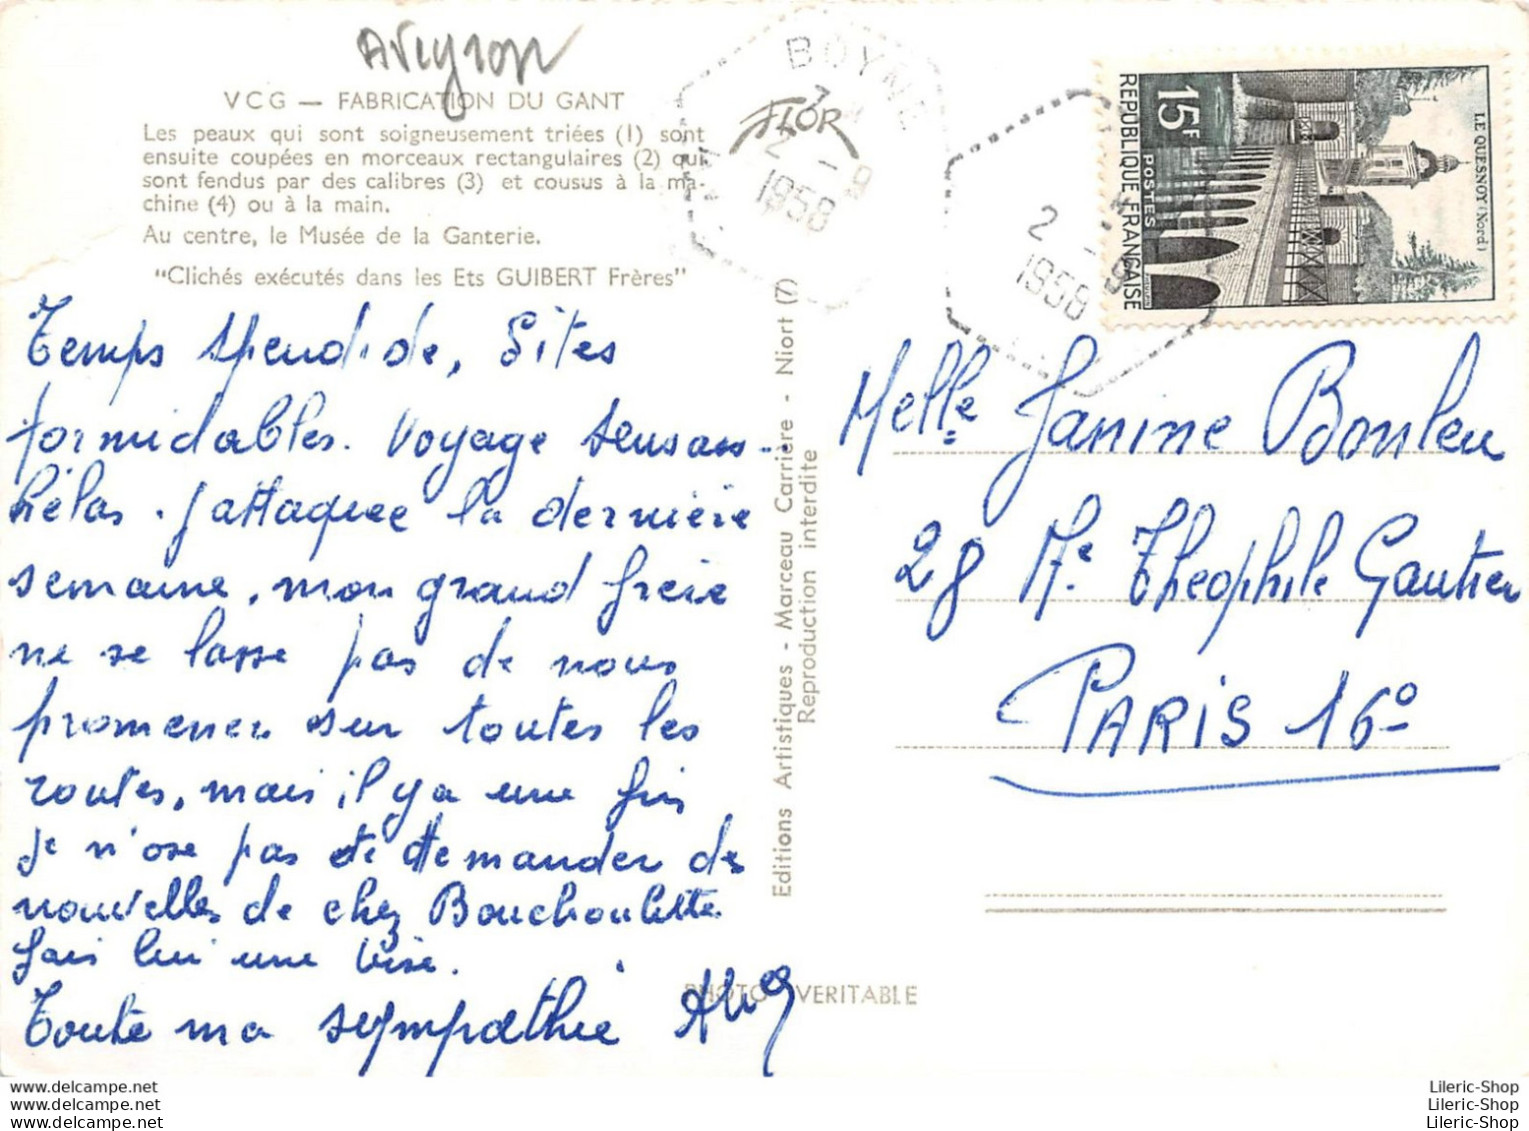 Aveyron
VCG — FABRICATION DU GANT
Les peaux qui sont soigneusement triées (1) sont
ensuite coupées en morceaux rectangulaires (2) qui
sont fendus par des calibres (3) et cousus à la ma-
chine (4) ou à la main.
Au centre, le Musée de la Ganterie.
"Clichés exécutés dans les Ets GUIBERT Frères"
Temps splendide, Sites
formidables. Voyage sensas-
hélas. J'attaque la dernière
semaine, mon grand frère
ne se lasse pas de nous
promener sur toutes les
routes, mais il y a une fin
je n'ose pas te demander de
nouvelles de chez Bouchoulette
fais lui une bise.
Toute ma sympathie
FLOR
BOYNE
2 - 9
1958
2 - 9
1958
15F
POSTES
REPUBLIQUE FRANÇAISE
LE QUESNOY (Nord)
Editions Artistiques - Marceau Carrière - Niort (7)
Reproduction interdite
Melle Janine Bonleu
28 Théophile Gautier
PARIS 16°
PHOTO VERITABLE
www.delcampe.net
www.delcampe.net
www.delcampe.net
Lileric-Shop
Lileric-Shop
Lileric-Shop